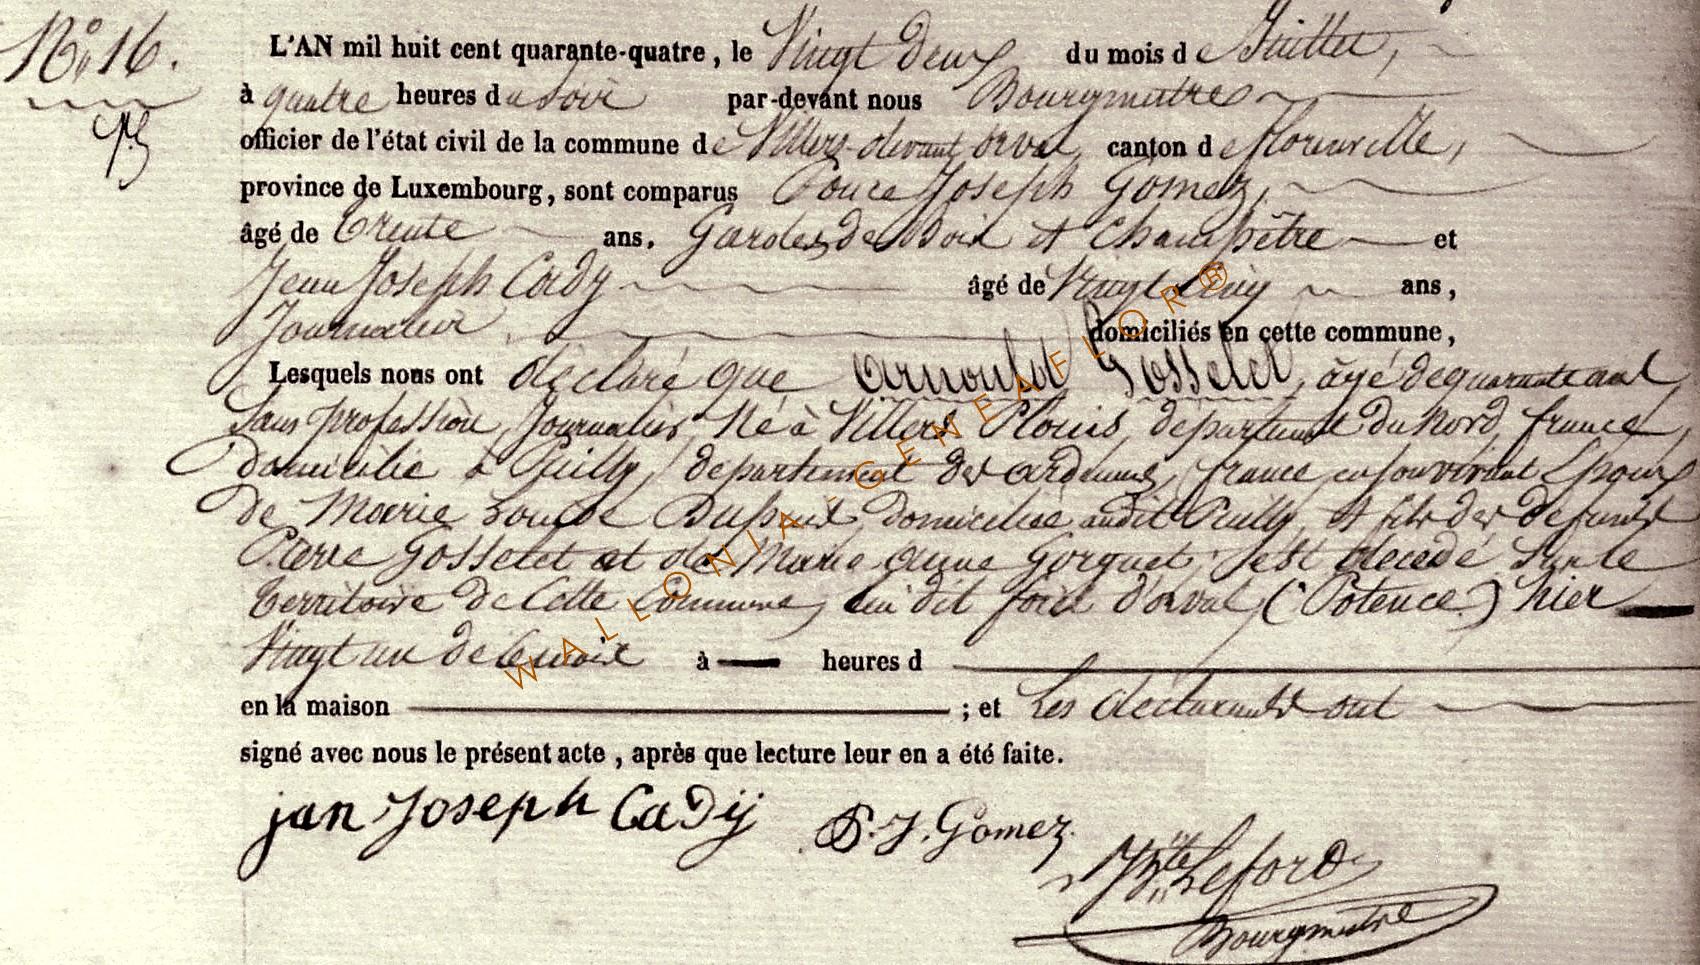 N° 16.
L'AN mil huit cent quarante-quatre, le Vingt deux du mois de Juillet,
à quatre heures du soir par-devant nous Bourgmestre
officier de l'état civil de la commune de Villers-devant orval, canton de florenville,
province de Luxembourg, sont comparus Ponce Joseph Gomez,
âgé de trente ans. Gardes de Bois et Champêtre et
Jean Joseph Cady âgé de Vingt ans,
Journalier domiciliés en cette commune,
Lesquels nous ont déclaré que Arnould Gosselet, âgé de quarante ans,
Sans profession, Journalier, Né à Villers Plouis, département du Nord, france,
domicilié à Puilly, département des ardennes, france, en son vivant Epoux
de Marie Louise domiciliée audit Puilly, et fils des défunts
Pierre Gosselet et de Marie Anne Gorguet, est décédé sur le
territoire de Cette Commune, lieu dit foret d'orval, (Potence) hier
Vingt un de ce mois à heures d
en la maison ; et Les déclarants ont
signé avec nous le présent acte, après que lecture leur en a été faite.
jan Joseph Cadij P. J. Gomez
Bte Leford
Bourgmestre
WALLONIA-GENEAFLOR®